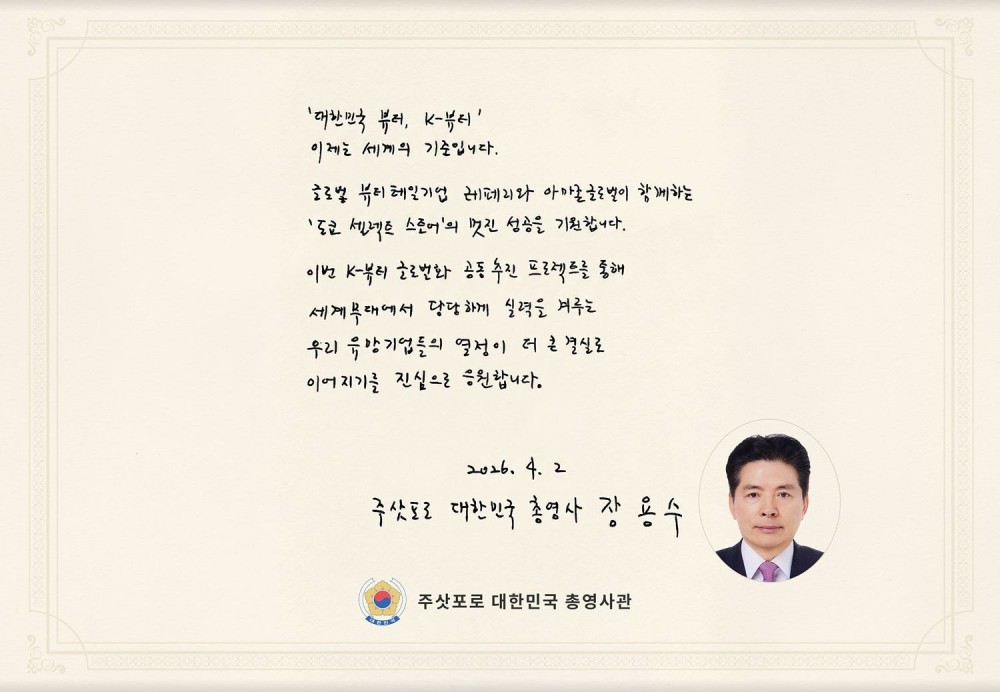 '대한민국 뷰티, K-뷰티'
이제는 세계의 기준입니다.
글로벌 뷰티테일기업 레페리와 아마존글로벌이 함께하는
'도쿄 셀렉트 스토어'의 멋진 성공을 기원합니다.
이번 K-뷰티 글로벌화 공동추진 프로젝트를 통해
세계무대에서 당당하게 실력을 겨루는
우리 유망기업들의 열정이 더 큰 결실로
이어지기를 진심으로 응원합니다.
2026. 4. 2
주삿포로 대한민국 총영사 장용수
대한민국
주삿포로 대한민국 총영사관